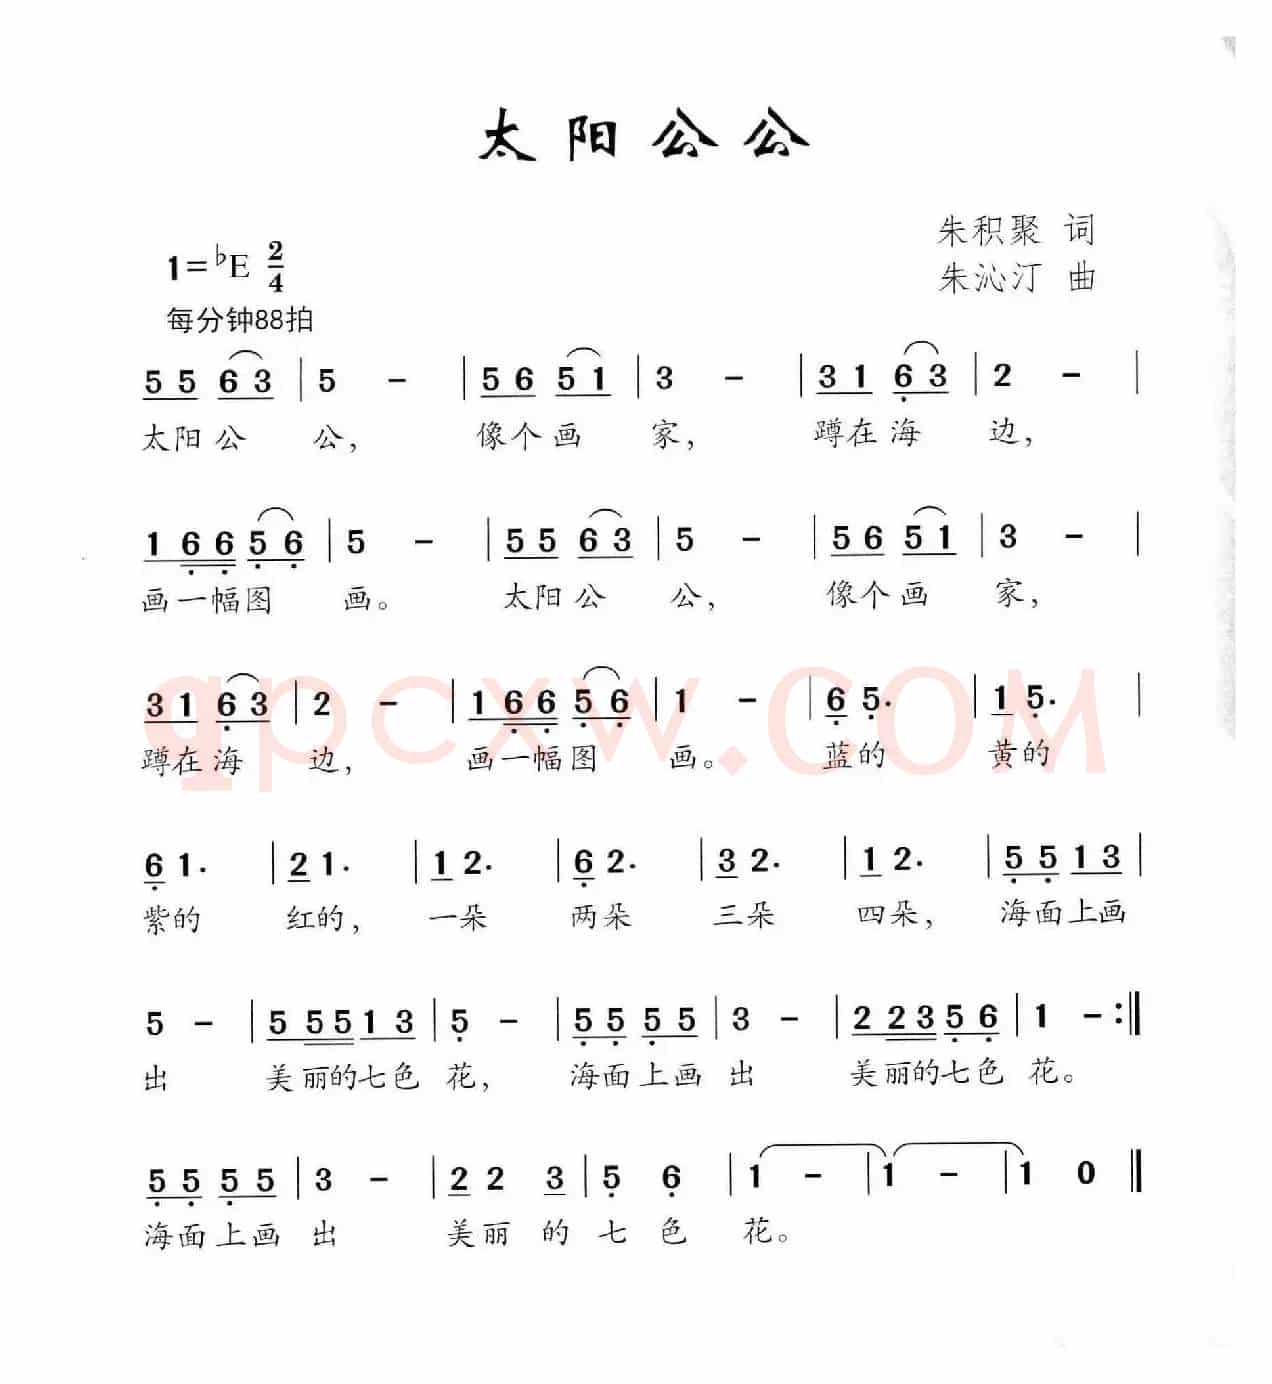 太阳公公
朱积聚 词
1=♭E 2/4
朱沁汀 曲
每分钟88拍
5 5 6 3 | 5 – | 5 6 5 1 | 3 – | 3 1 6̣ 3 | 2 – |
太阳公 公， 像个画 家， 蹲在海 边，
1 6̣ 6̣ 5̣ 6̣ | 5 – | 5 5 6 3 | 5 – | 5 6 5 1 | 3 – |
画一幅图 画。 太阳公 公， 像个画 家，
3 1 6̣ 3 | 2 – | 1 6̣ 6̣ 5̣ 6̣ | 1 – | 6̣ 5̣. | 1 5̣. |
蹲在海 边， 画一幅图 画。 蓝的 黄的
qpcxw.COM
6̣ 1. | 2 1. | 1 2. | 6̣ 2. | 3 2. | 1 2. | 5̣ 5̣ 1 3 |
紫的 红的， 一朵 两朵 三朵 四朵， 海面上画
5 – | 5 5 5 1 3 | 5̣ – | 5̣ 5̣ 5̣ 5 | 3 – | 2 2 3 5̣ 6̣ | 1 – :‖
出 美丽的七色 花， 海面上画 出 美丽的七色 花。
5̣ 5̣ 5̣ 5 | 3 – | 2 2 3 | 5̣ 6̣ | 1 – | 1 – | 1 0 ‖
海面上画 出 美丽 的 七 色 花。